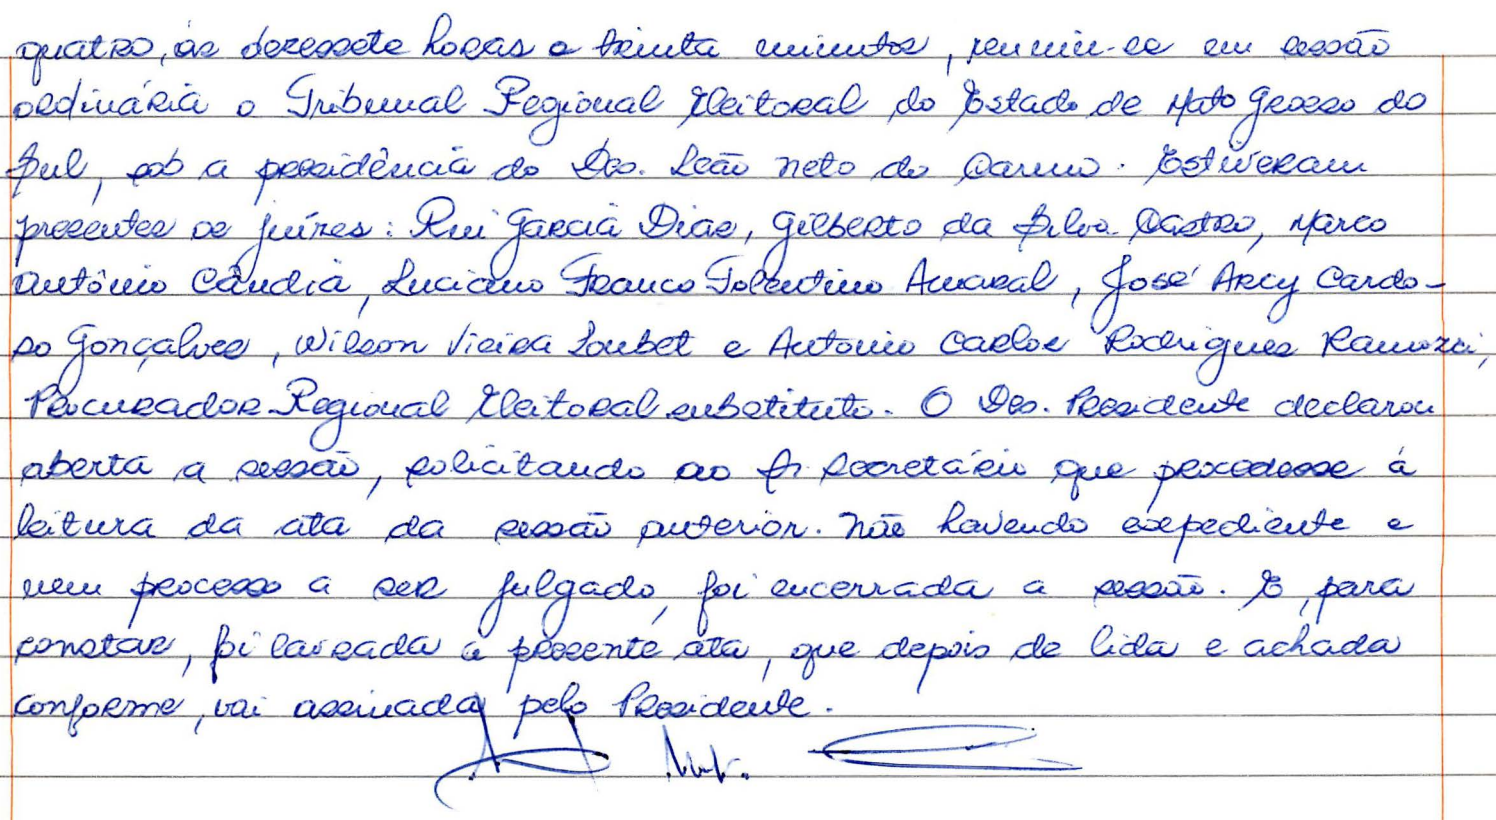 quatro, às dezessete horas e trinta minutos, reuniu-se em sessão
ordinária o Tribunal Regional Eleitoral do Estado de Mato Grosso do
Sul, sob a presidência do Des. Leão Neto do Carmo. Estiveram
presentes os juízes: Rui Garcia Dias, Gilberto da Silva Castro, Marco
Antônio Cândia, Luciano Franco Tolentino Amaral, José Arcy Cardo-
so Gonçalves, Wilson Vieira Loubet e Antonio Carlos Rodrigues Ramozzi,
Procurador Regional Eleitoral substituto. O Des. Presidente declarou
aberta a sessão, solicitando ao Sr. Secretário que procedesse à
leitura da ata da sessão anterior. Não havendo expediente e
nem processo a ser julgado, foi encerrada a sessão. E, para
constar, foi lavrada a presente ata, que depois de lida e achada
conforme, vai assinada pelo Presidente.